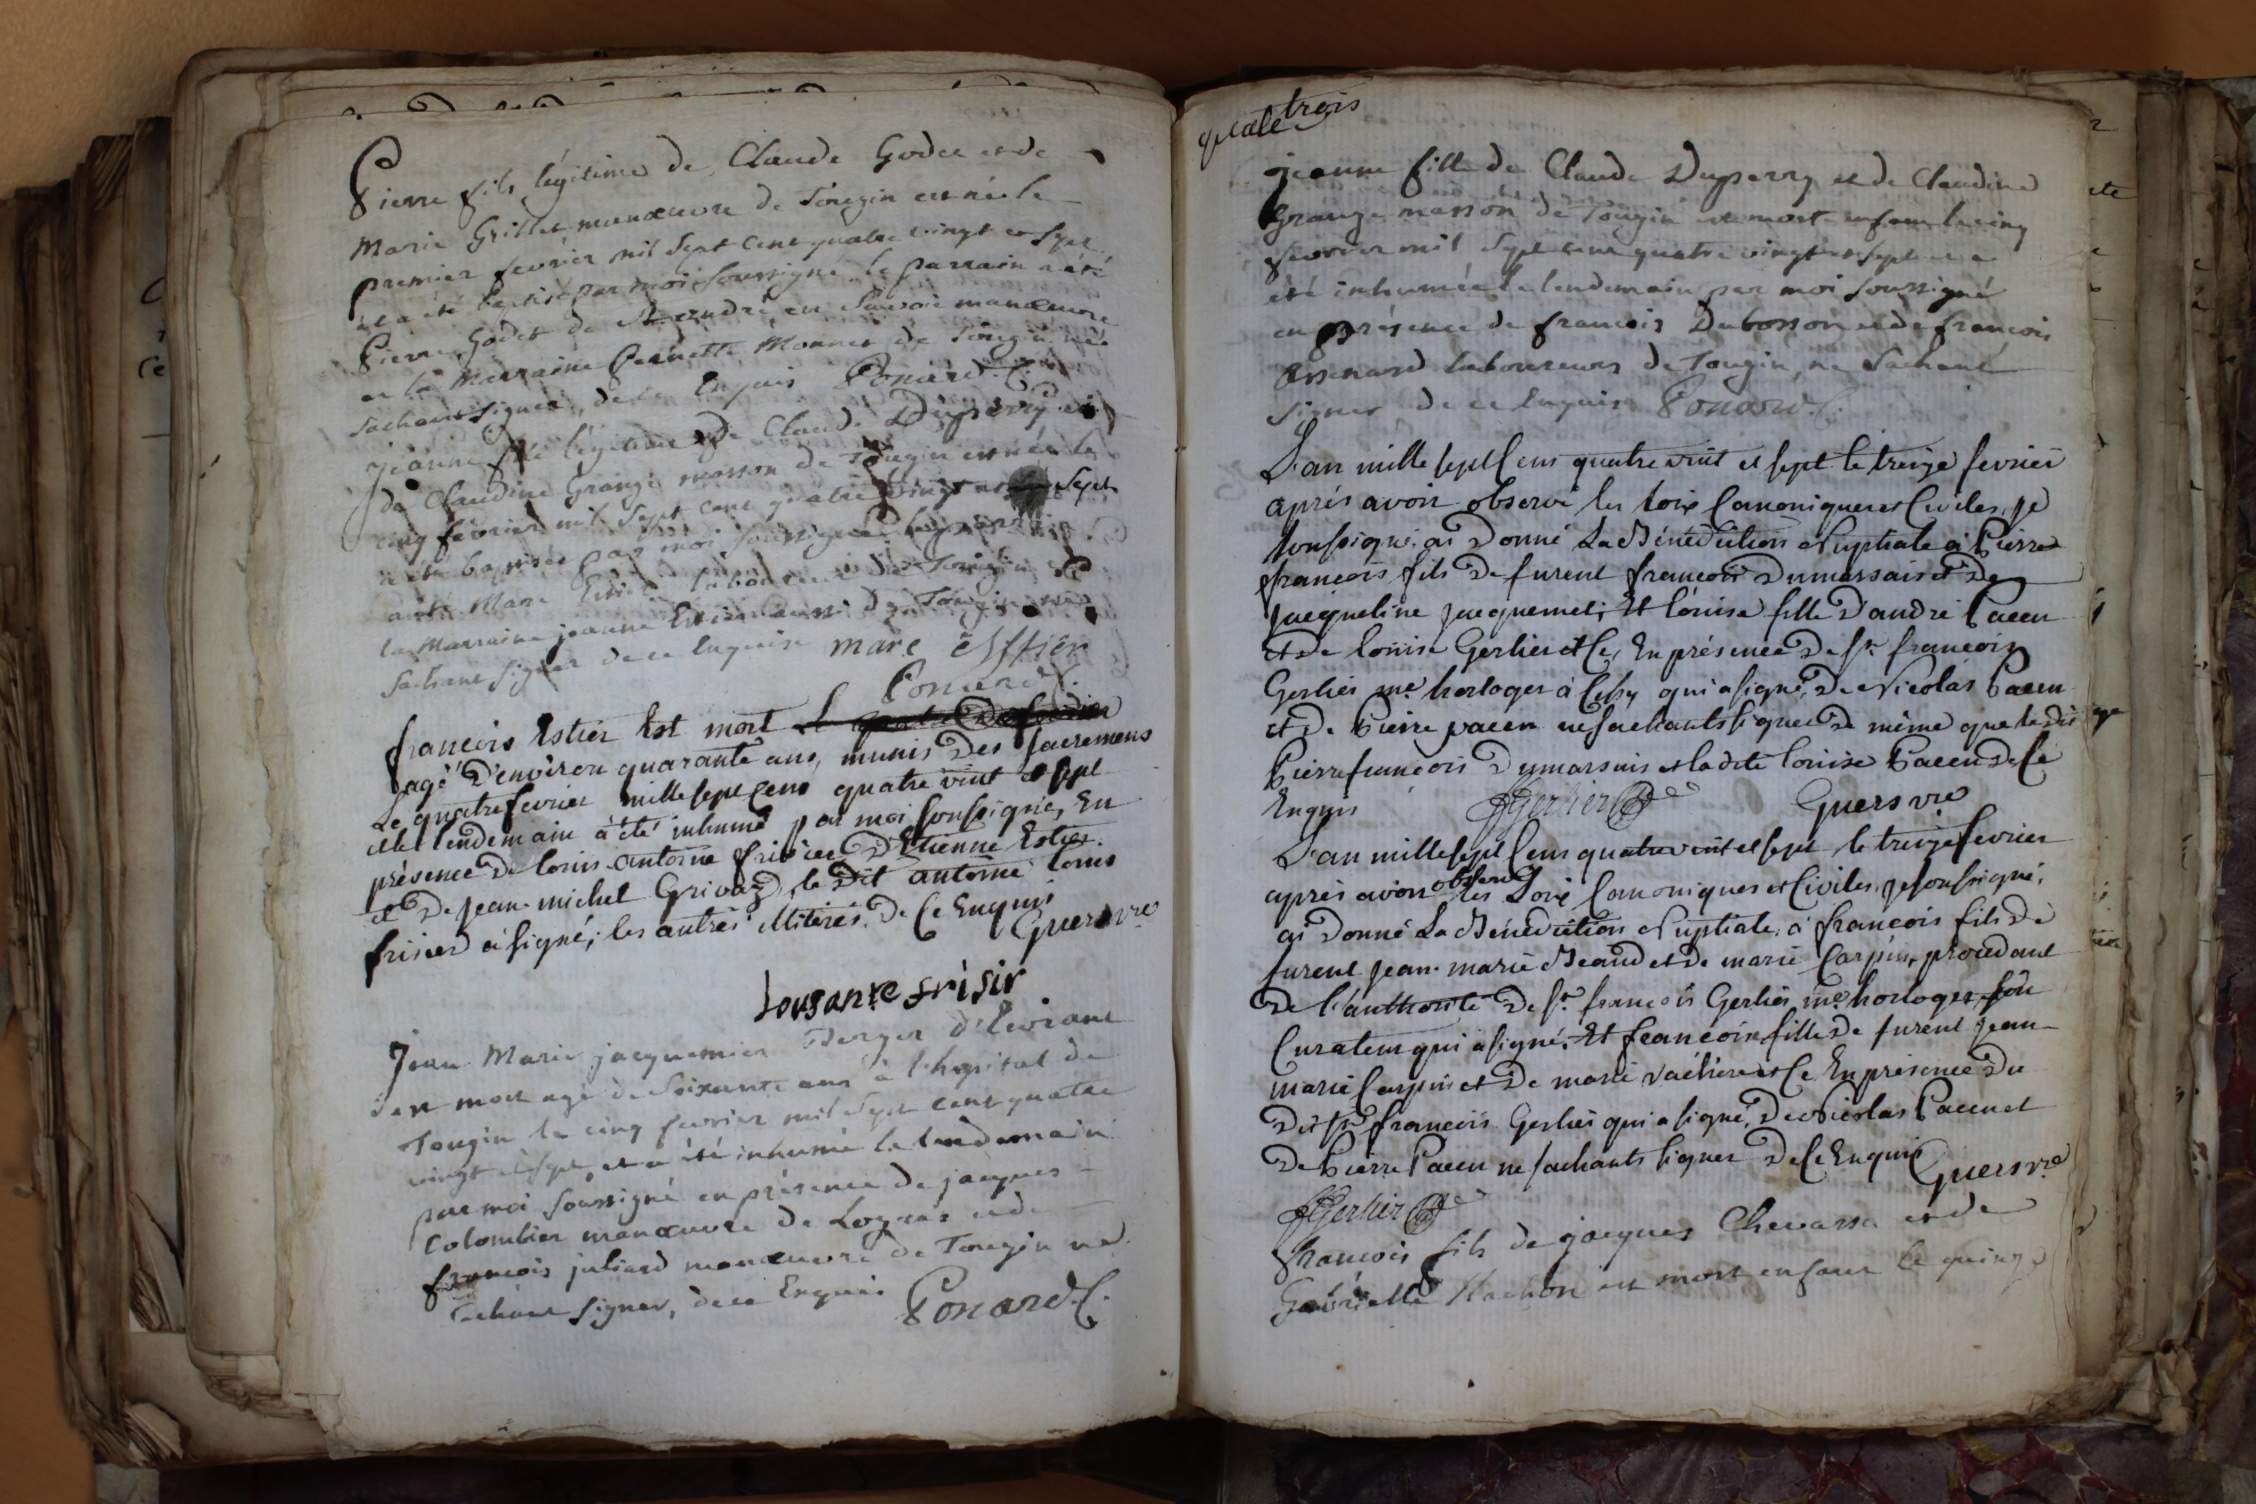 Pierre fils légitime de Claude Godet et de
Marie Grillet manœuvre de Tougin est né le
premier fevrier mil sept cent quatre vingt et sept
et a été baptisé par moi soussigné, le parrain a été
Pierre Godet de St andré en Savoie manœuvre
et la Marraine Pernette Monnet de Tougin ne
sachant signer, de ce Enquis Ponard C.
jeanne fille légitime de Claude Duperry et
de Claudine Grange masson de Tougin est née le
cinq fevrier mil sept cent quatre vingt et sept
a été baptisée par moi soussigné le parrain
a été Marc Estier laboureur de Tougin et
la Marraine jeanne Estier aussi de Tougin ne
sachant signer de ce enquise marc Esttier
Ponard C.
francois Estier Est mort le quatre de fevrier
agé D'environ quarante ans, munis des sacremens
Le quatre fevrier mille sept Cens quatre vint et sept
et le lendemain a été inhumé par moi soussigné, En
présence De louis antoine frisier D'Etienne Estier
et De jean-michel Grivaz, le Dit antoine louis
frisier a signé; les autres illiterés De Ce Enquis
Guers vre
Lousantre frisir
Jean Marie jacquemier Berger d'Eviant
est mort agé de Soixante ans à l'hopital de
Tougin le cinq fevrier mil sept cent quatre
vingt et sept et a été inhumé le lendemain
par moi soussigné en présence de jacques
Colombier manœuvre de Lognas et de
francois juliard manœuvre de Tougin ne
sachant signer, de ce Enquis Ponard. C.
trois
jeanne fille de Claude Duperry et de Claudine
Grange masson de Tougin est mort enfant le cinq
fevrier mil sept cent quatre vingt et sept et a
été inhumée le lendemain par moi soussigné
en présence de francois Dubosson et de francois
laboureurs de Tougin, ne Sachant
signer de ce Enquis Ponard. C.
L'an mille sept Cens quatre vint et sept le treize fevrier
après avoir observé les loix Canoniques et Civiles, je
soussigné ai Donné La Bénédiction Nuptiale à Pierre
francois fils De furent francois Dumarsais et De
jacqueline jacquemet; Et louise fille D'andré Pacen
et De louise Gerlier et Ce, En présence De sr. francois
Gerlier me horloger à Cessy qui a signé, De Nicolas Pacen
et De Pierre pacen ne sachants signer De même que le dit
Pierre francois Dumarsais et la dite louise Pacen De Ce
Enquis ffGerlier Guers vre
L'an mille sept Cens quatre vint et sept le treize fevrier
après avoir observé les Loix Canoniques et Civiles, je soussigné,
ai Donné La Bénédiction Nuptiale, à francois fils De
furent jean-marie Beaud et De marie Carpin, procedant
De l'authorité De sr. francois Gerlier, me horloger, son
Curateur qui a signé; Et francoise fille De furent jean-
marie Carpin et De marie vachere et Ce En présence Du
Dit sr. francois Gerlier qui a signé, De Nicolas Pacen et
De Pierre Pacen ne sachants signer De Ce Enquis
Guers vre
ffGerlier
francois fils de jacques Chevassu et de
Gabrielle Machon est mort enfant le quinze